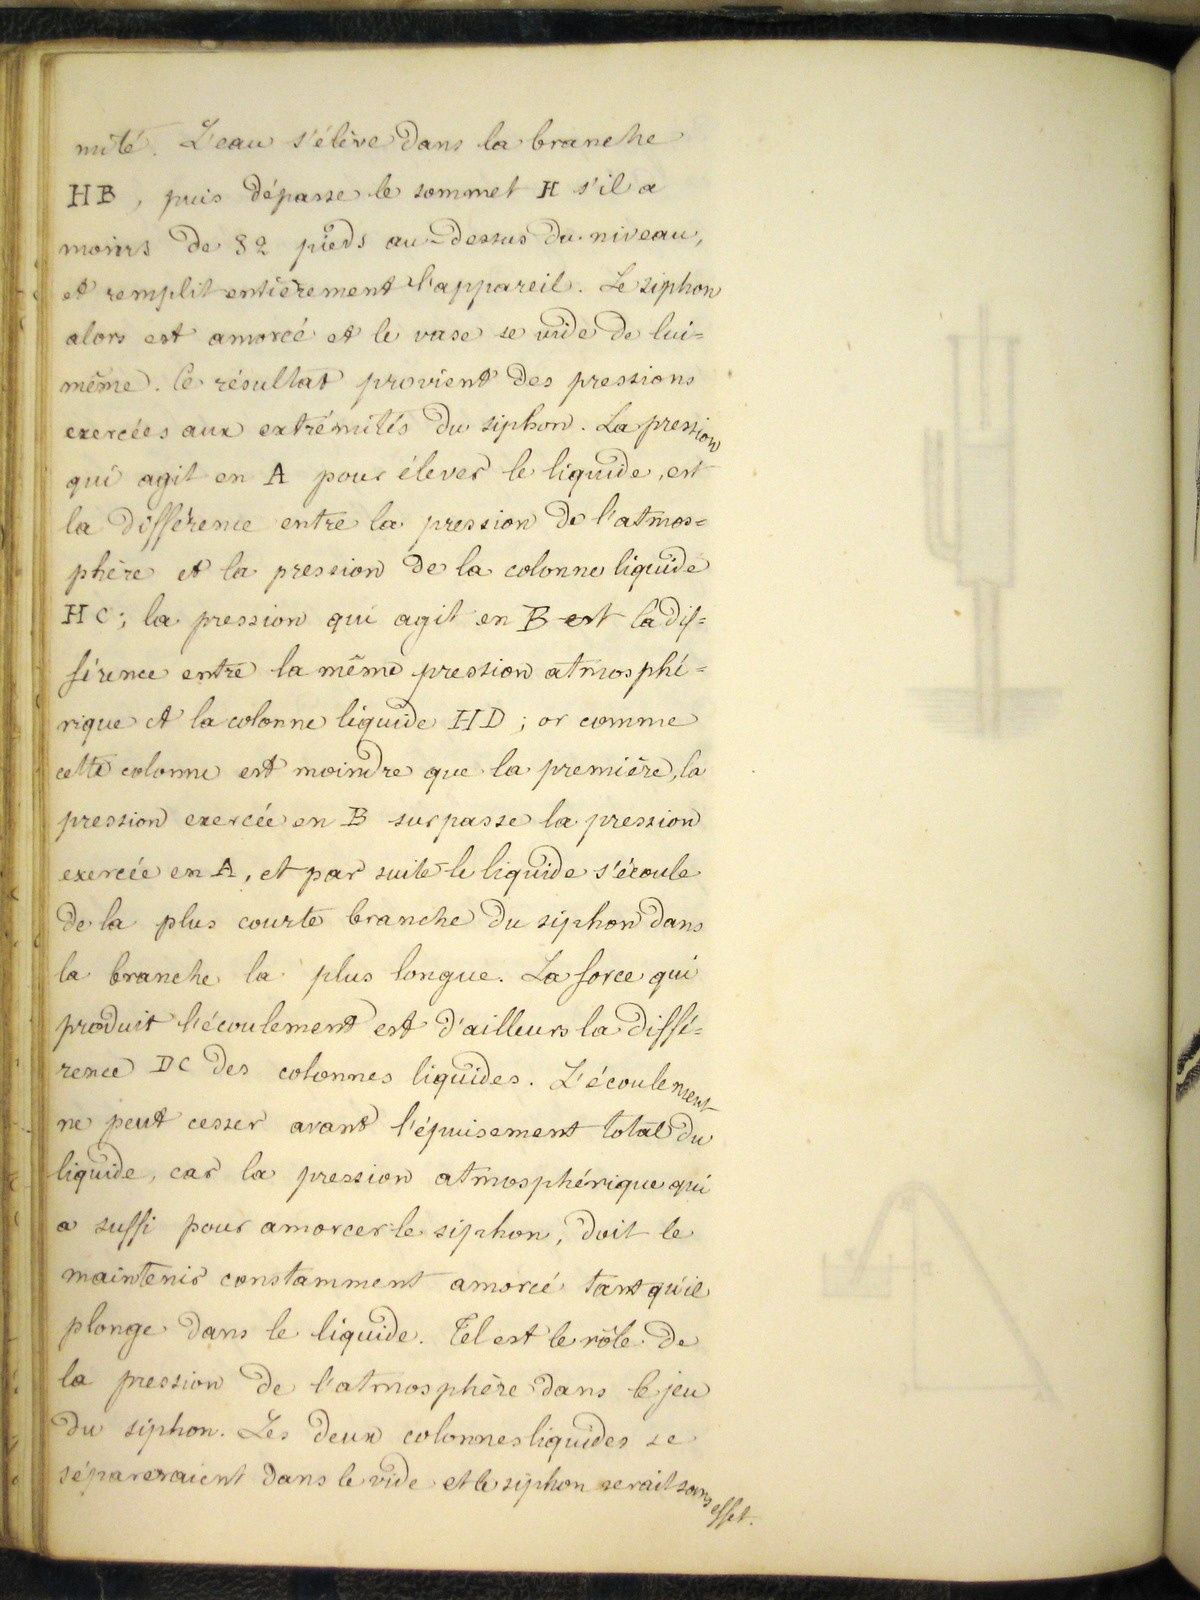 mité. L'eau s'élève dans la branche
HB, puis dépasse le sommet H s'il a
moins de 32 pieds au-dessus du niveau,
et remplit entièrement l'appareil. Le siphon
alors est amorcé et le vase se vide de lui=
même. Ce résultat provient des pressions
exercées aux extrémités du siphon. La pression
qui agit en A pour élever le liquide, est
la différence entre la pression de l'atmos=
phère et la pression de la colonne liquide
HC; la pression qui agit en B est la dif=
férence entre la même pression atmosphé=
rique et la colonne liquide HD; or comme
cette colonne est moindre que la première, la
pression exercée en B surpasse la pression
exercée en A, et par suite le liquide s'écoule
de la plus courte branche du siphon dans
la branche la plus longue. La force qui
produit l'écoulement est d'ailleurs la diffé=
rence DC des colonnes liquides. L'écoulement
ne peut cesser avant l'épuisement total du
liquide, car la pression atmosphérique qui
a suffi pour amorcer le siphon, doit le
maintenir constamment amorcé tant qu'il
plonge dans le liquide. Tel est le rôle de
la pression de l'atmosphère dans le jeu
du siphon. Les deux colonnes liquides se
sépareraient dans le vide et le siphon serait sans effet.